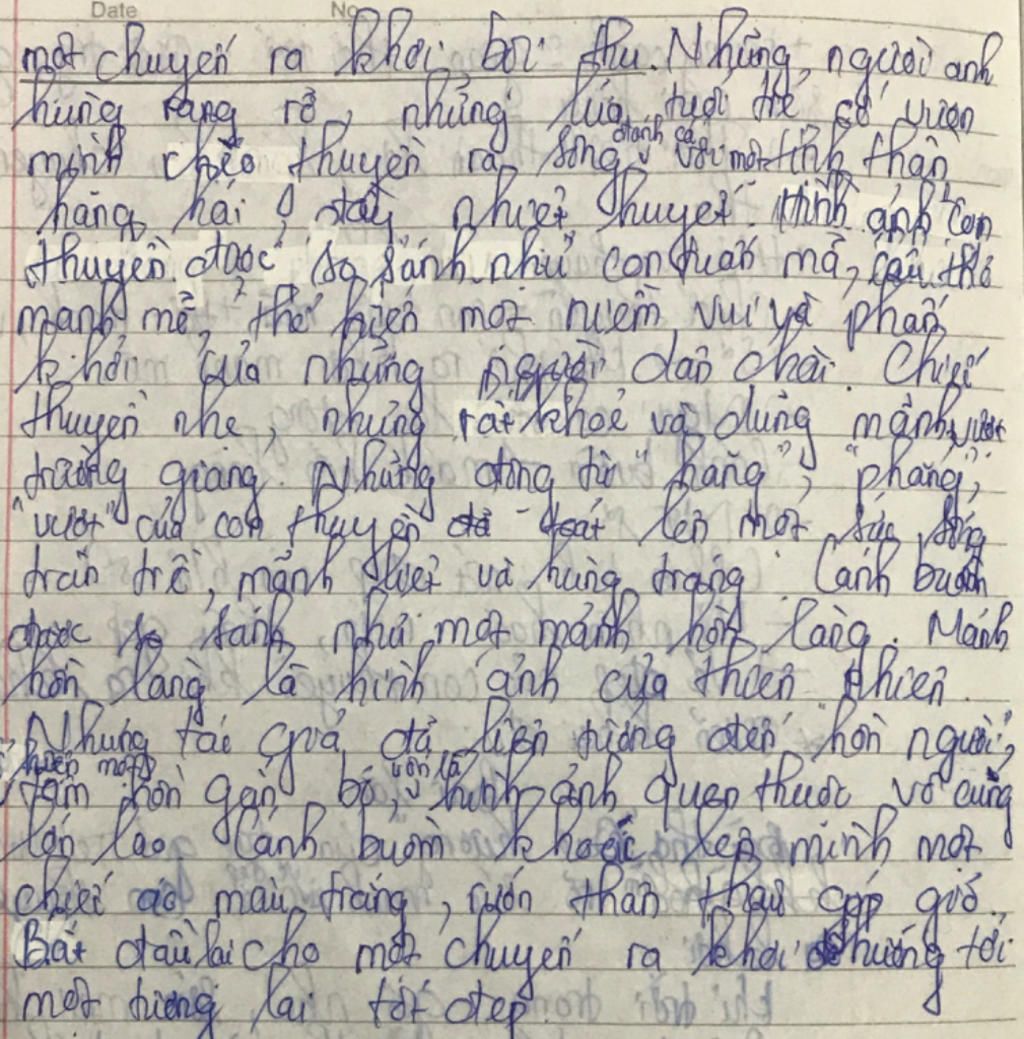 Date No
một chuyến ra khơi bội thu. Những người anh
hùng rạng rỡ, những lứa tuổi trẻ cố vươn
mình chèo thuyền ra sông đánh cá với một tinh thần
hăng hái, đầy nhiệt huyết. Hình ảnh con
thuyền được so sánh như con tuấn mã, câu thơ
mạnh mẽ, thể hiện một niềm vui và phấn
khởi của những người dân chài. Chiếc
thuyền nhẹ, nhưng rất khoẻ và dũng mãnh vượt
trường giang. Những động từ "hăng", "phăng",
"vượt" của con thuyền đã toát lên một sức sống
tràn trề, mãnh liệt và hùng tráng. Cánh buồm
được so sánh như một mảnh hồn làng. Mảnh
hồn làng là hình ảnh của thiên nhiên.
Nhưng tác giả đã liên tưởng đến "hồn người",
một tâm hồn gắn bó, vốn là hình ảnh quen thuộc vô cùng
lớn lao. Cánh buồm khoác lên mình một
chiếc áo màu trắng, rướn thân thâu góp gió.
Bắt đầu lại cho một chuyến ra khơi hướng tới
một tương lai tốt đẹp.